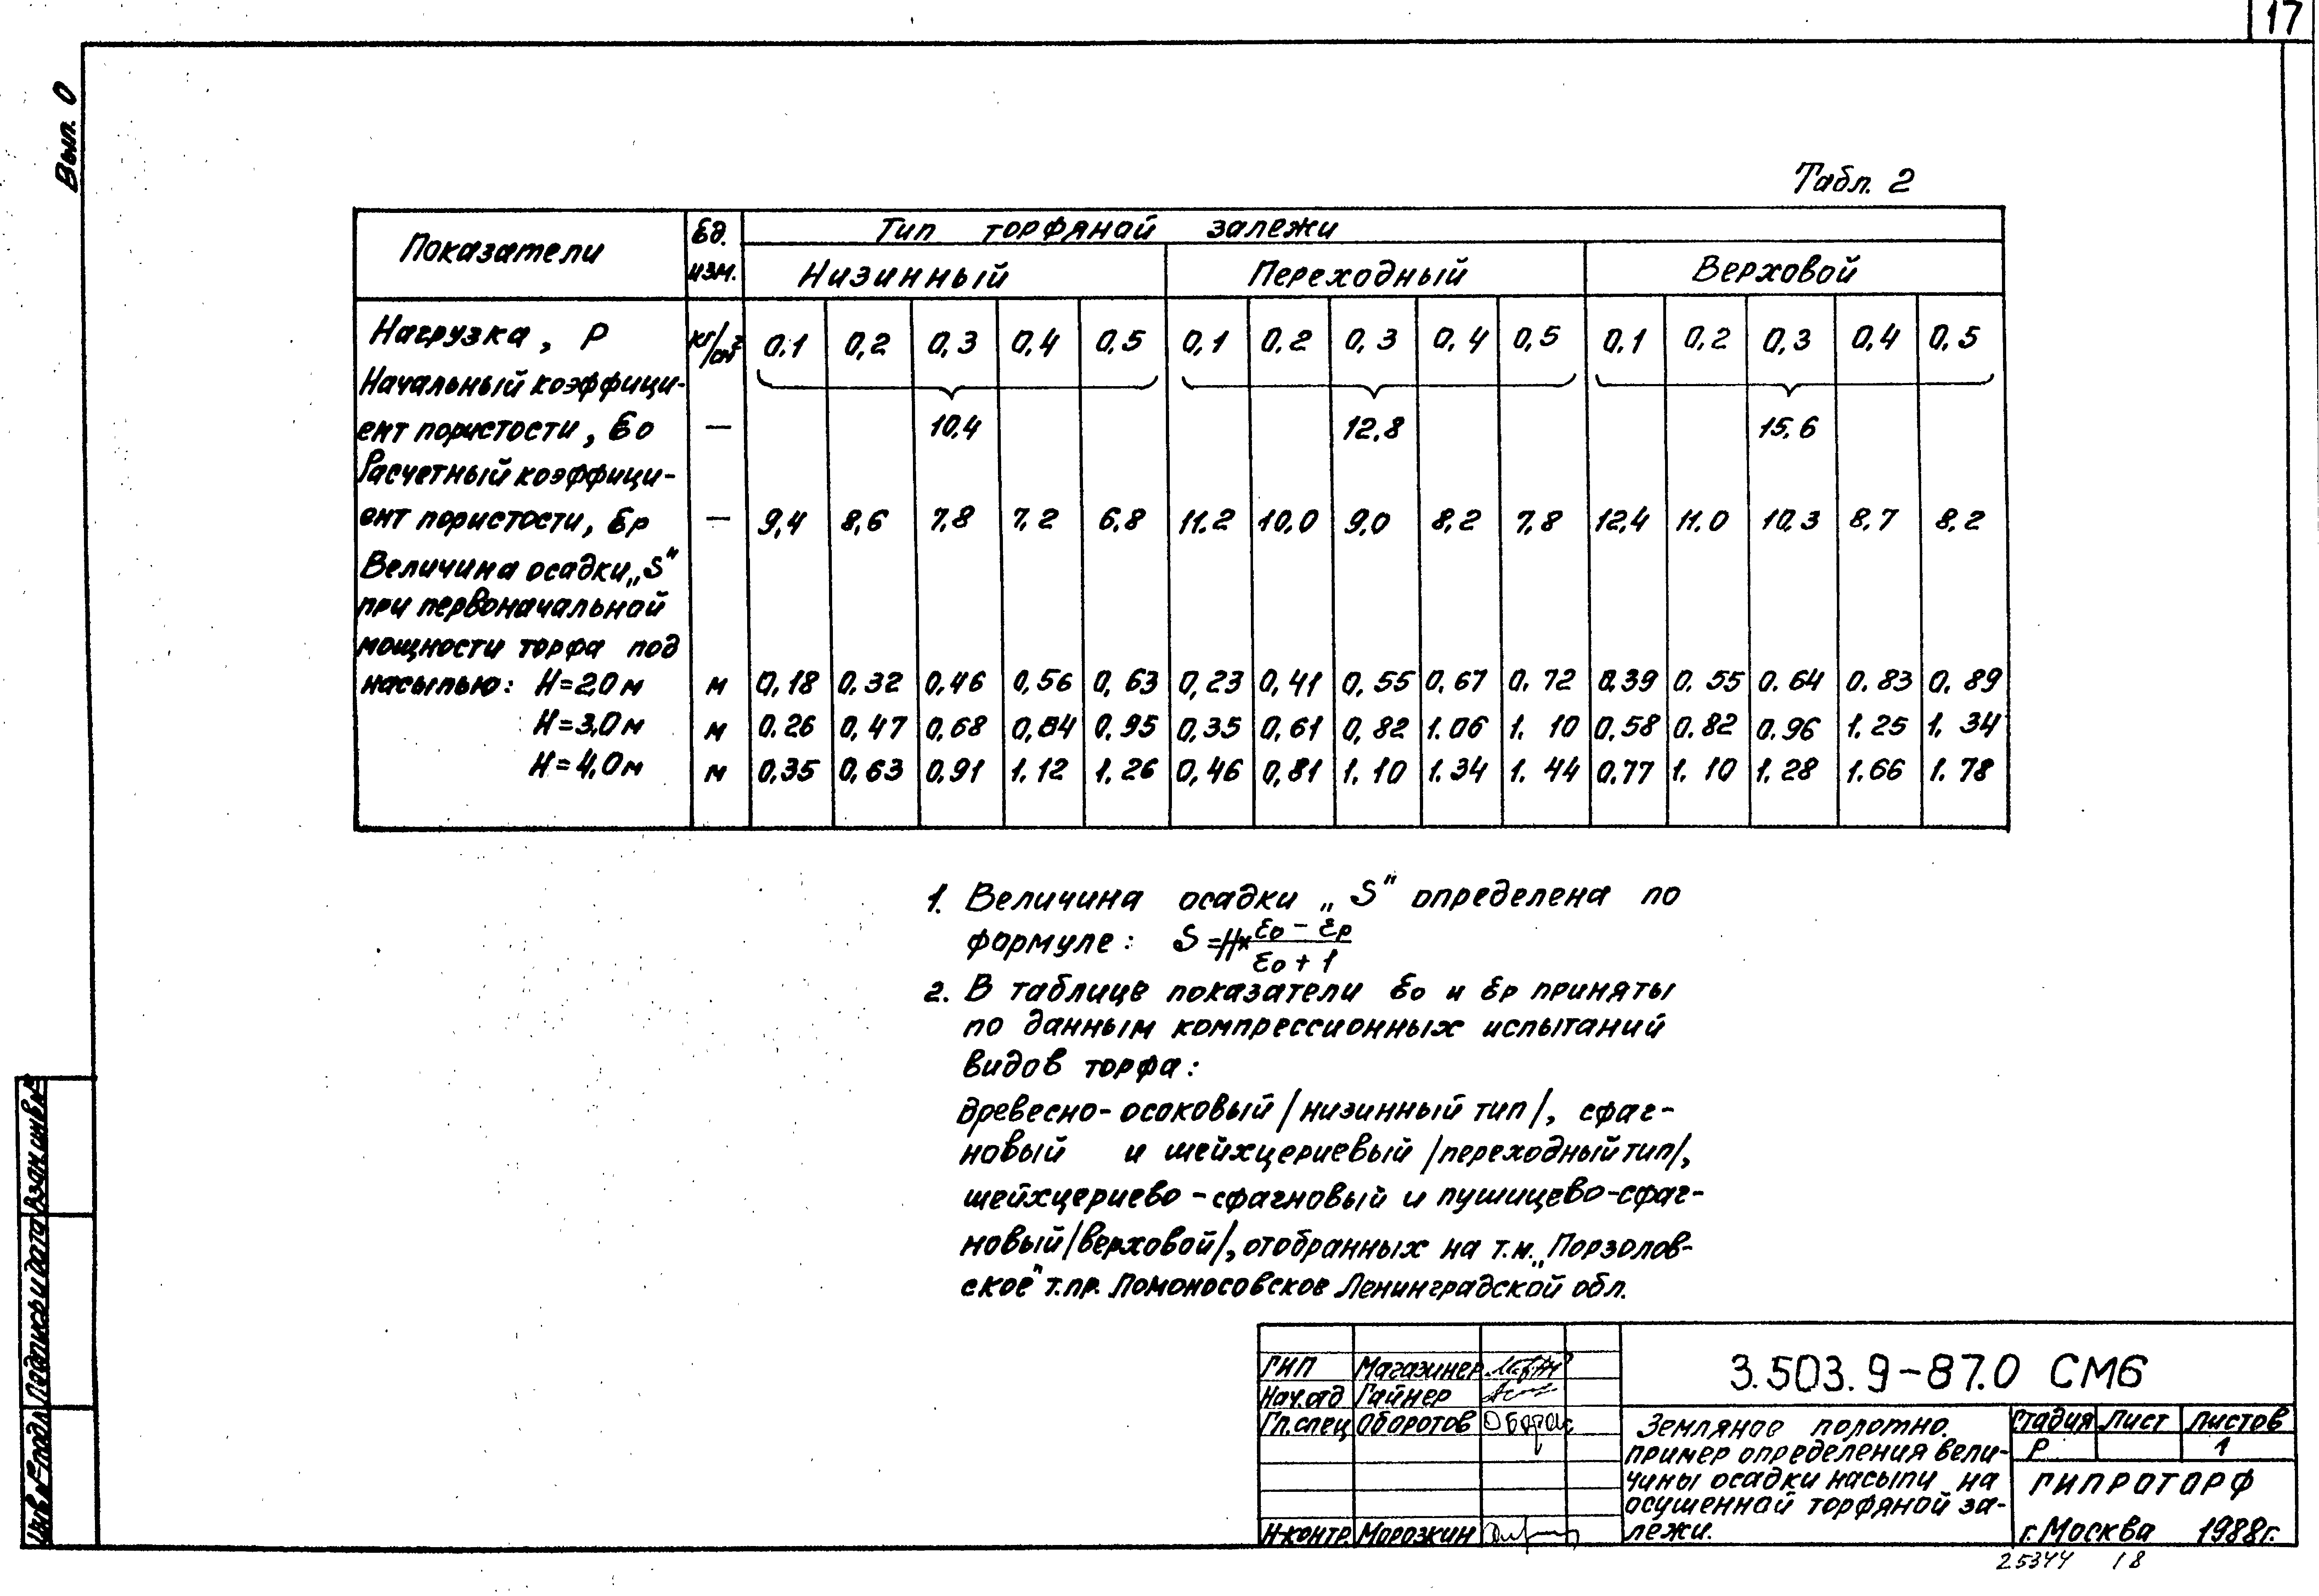 17
Вып. 0
Табл. 2
Показатели Ед. изм. Тип торфяной залежи
Низинный Переходный Верховой
Нагрузка, Р кг/см² 0.1 0,2 0,3 0,4 0,5 0,1 0.2 0,3 0,4 0,5 0.1 0,2 0,3 0,4 0,5
Начальный коэффици-
ент пористости, εо — 10,4 12,8 15,6
Расчетный коэффици-
ент пористости, εр — 9,4 8,6 7,8 7,2 6,8 11.2 10,0 9,0 8,2 7,8 12,4 11.0 10,3 8,7 8.2
Величина осадки „S"
при первоначальной
мощности торфа под
насыпью: Н=2,0м м 0,18 0,32 0,46 0,56 0,63 0,23 0,41 0,55 0,67 0,72 0,39 0.55 0.64 0.83 0.89
Н=3,0м м 0.26 0,47 0,68 0,84 0,95 0,35 0,61 0,82 1.06 1.10 0,58 0.82 0.96 1.25 1.34
Н=4,0м м 0,35 0,63 0,91 1.12 1.26 0,46 0,81 1.10 1.34 1.44 0.77 1.10 1.28 1.66 1.78
1. Величина осадки „S" определена по
формуле: S=H×(εо − εр)/(εо + 1)
2. В таблице показатели εо и εр приняты
по данным компрессионных испытаний
видов торфа:
древесно-осоковый /низинный тип/, сфаг-
новый и шейхцериевый /переходный тип/,
шейхцериево-сфагновый и пушицево-сфаг-
новый /верховой/, отобранных на т.м. „Порзолов-
ское" т.пр. Ломоносовское Ленинградской обл.
ГИП Магазинер
Нач.отд Гайнер
Гл.спец Оборотов
Н.контр. Морозкин
3.503.9-87.0 СМ6
Земляное полотно.
Пример определения вели-
чины осадки насыпи на
осушенной торфяной за-
лежи.
Стадия Лист Листов
Р 1
ГИПРОТОРФ
г. Москва 1988г.
25344 18
Взам.инв.№
Подпись и дата
Инв.№подл.